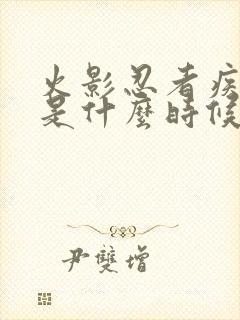 火影忍者疾
是什麼時候
尹雙增